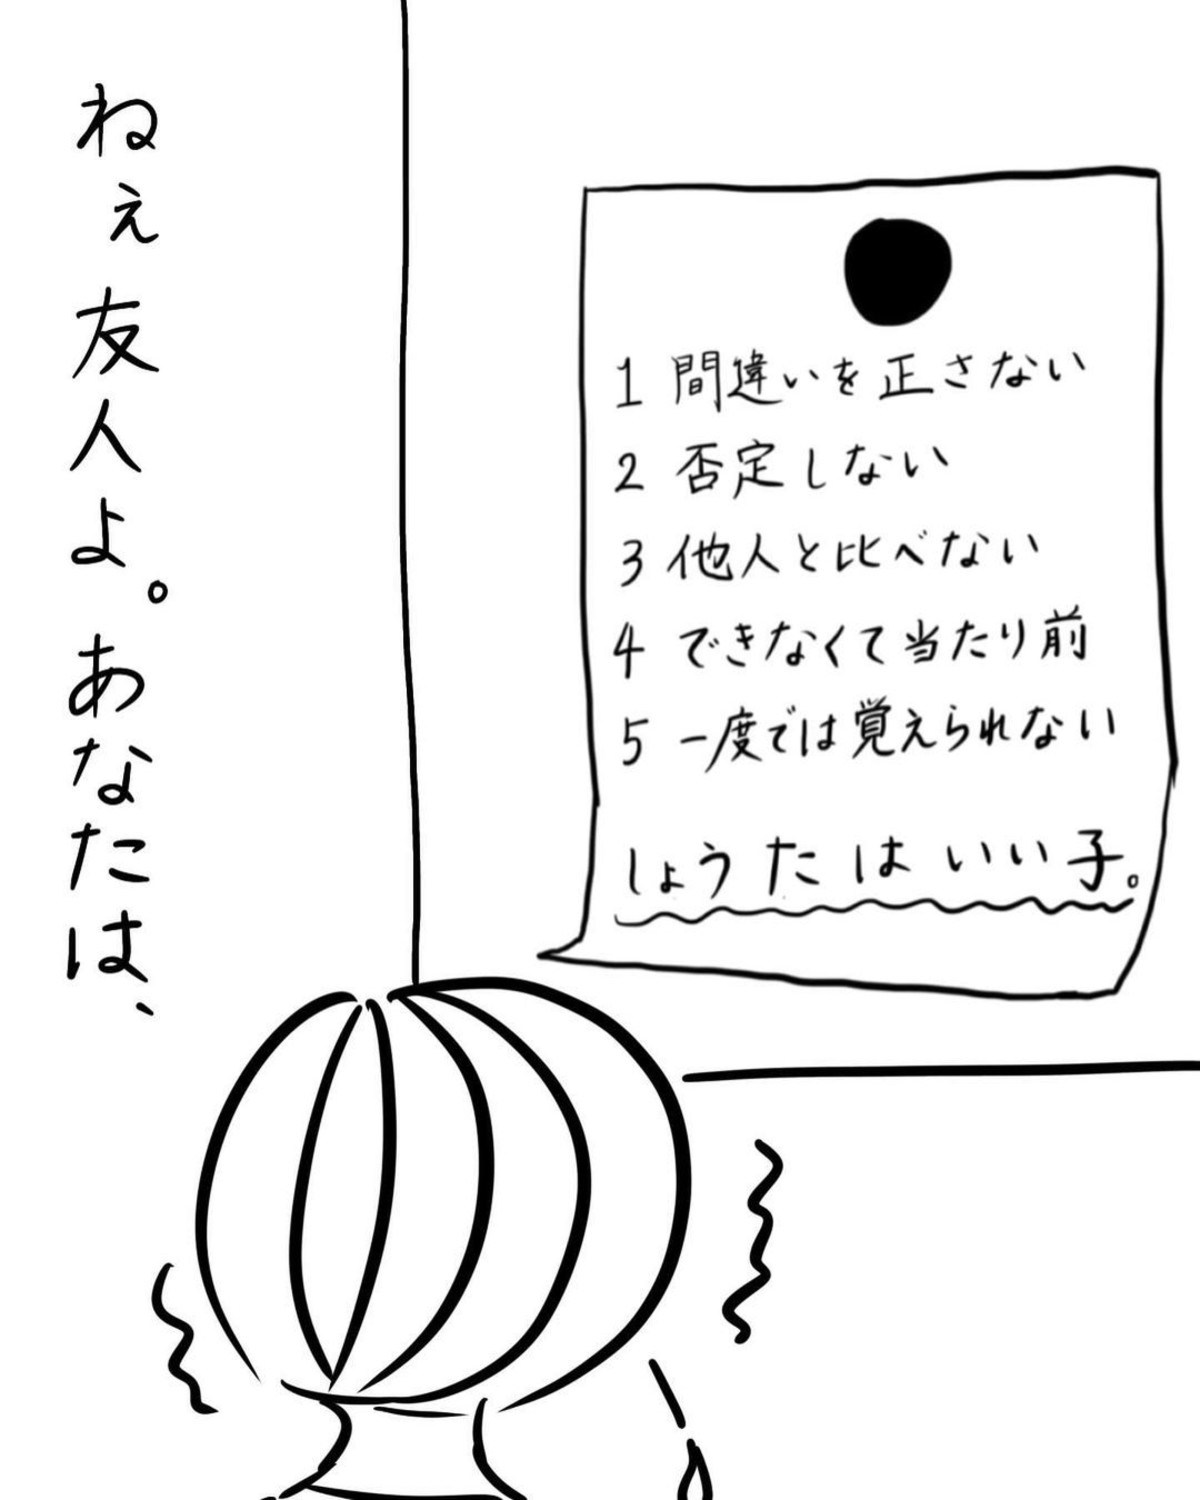 ねぇ友人よ。あなたは、
1 間違いを正さない
2 否定しない
3 他人と比べない
4 できなくて当たり前
5 一度では覚えられない
しょうたはいい子。